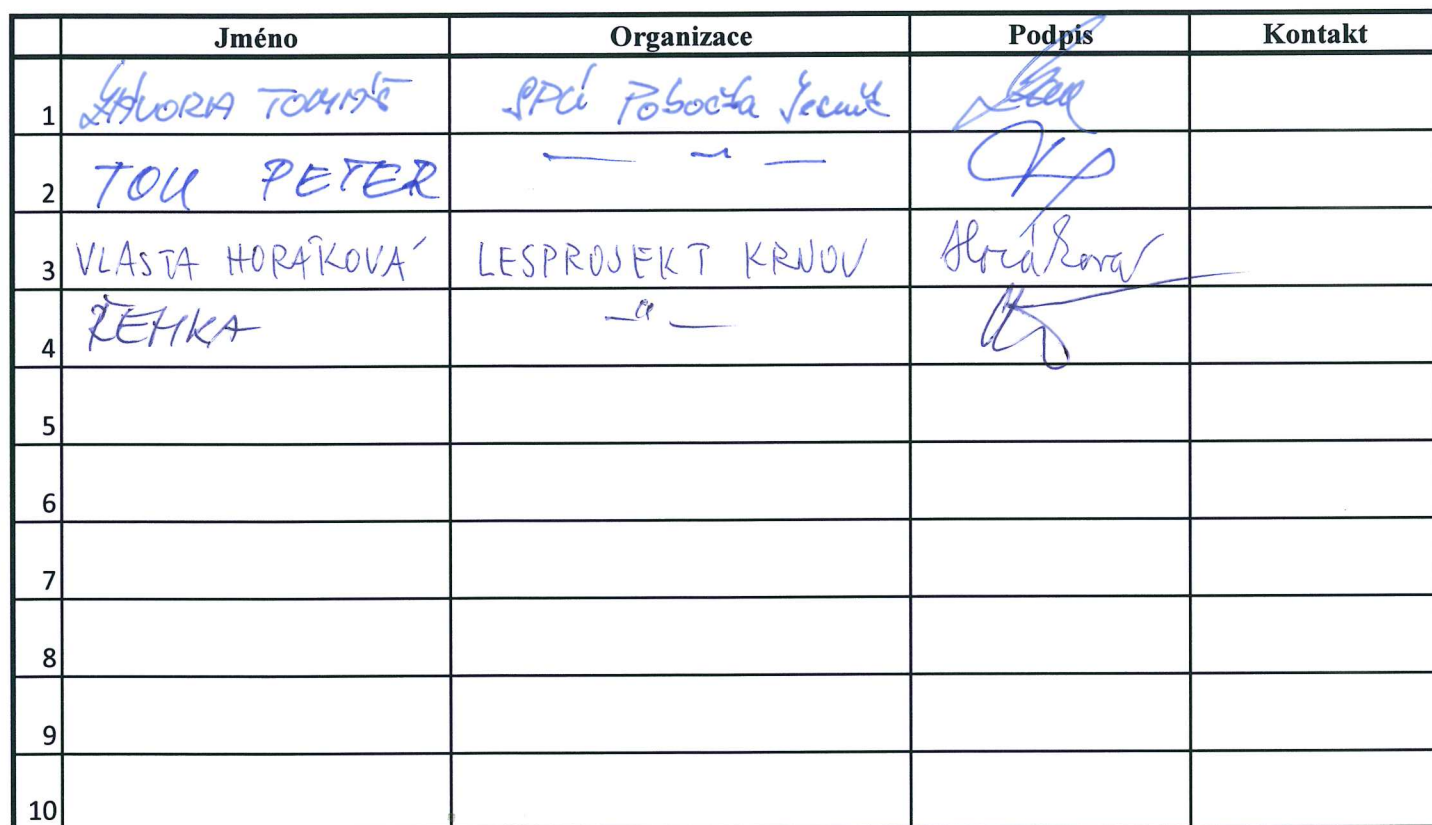 Jméno Organizace Podpis Kontakt
1 ZÁVORA TOMÁŠ Pobočka Jeseník
2 TOU PETER — " —
3 VLASTA HORÁKOVÁ LESPROJEKT KRNOV Horáková
4 ŘEHKA — " —
5
6
7
8
9
10